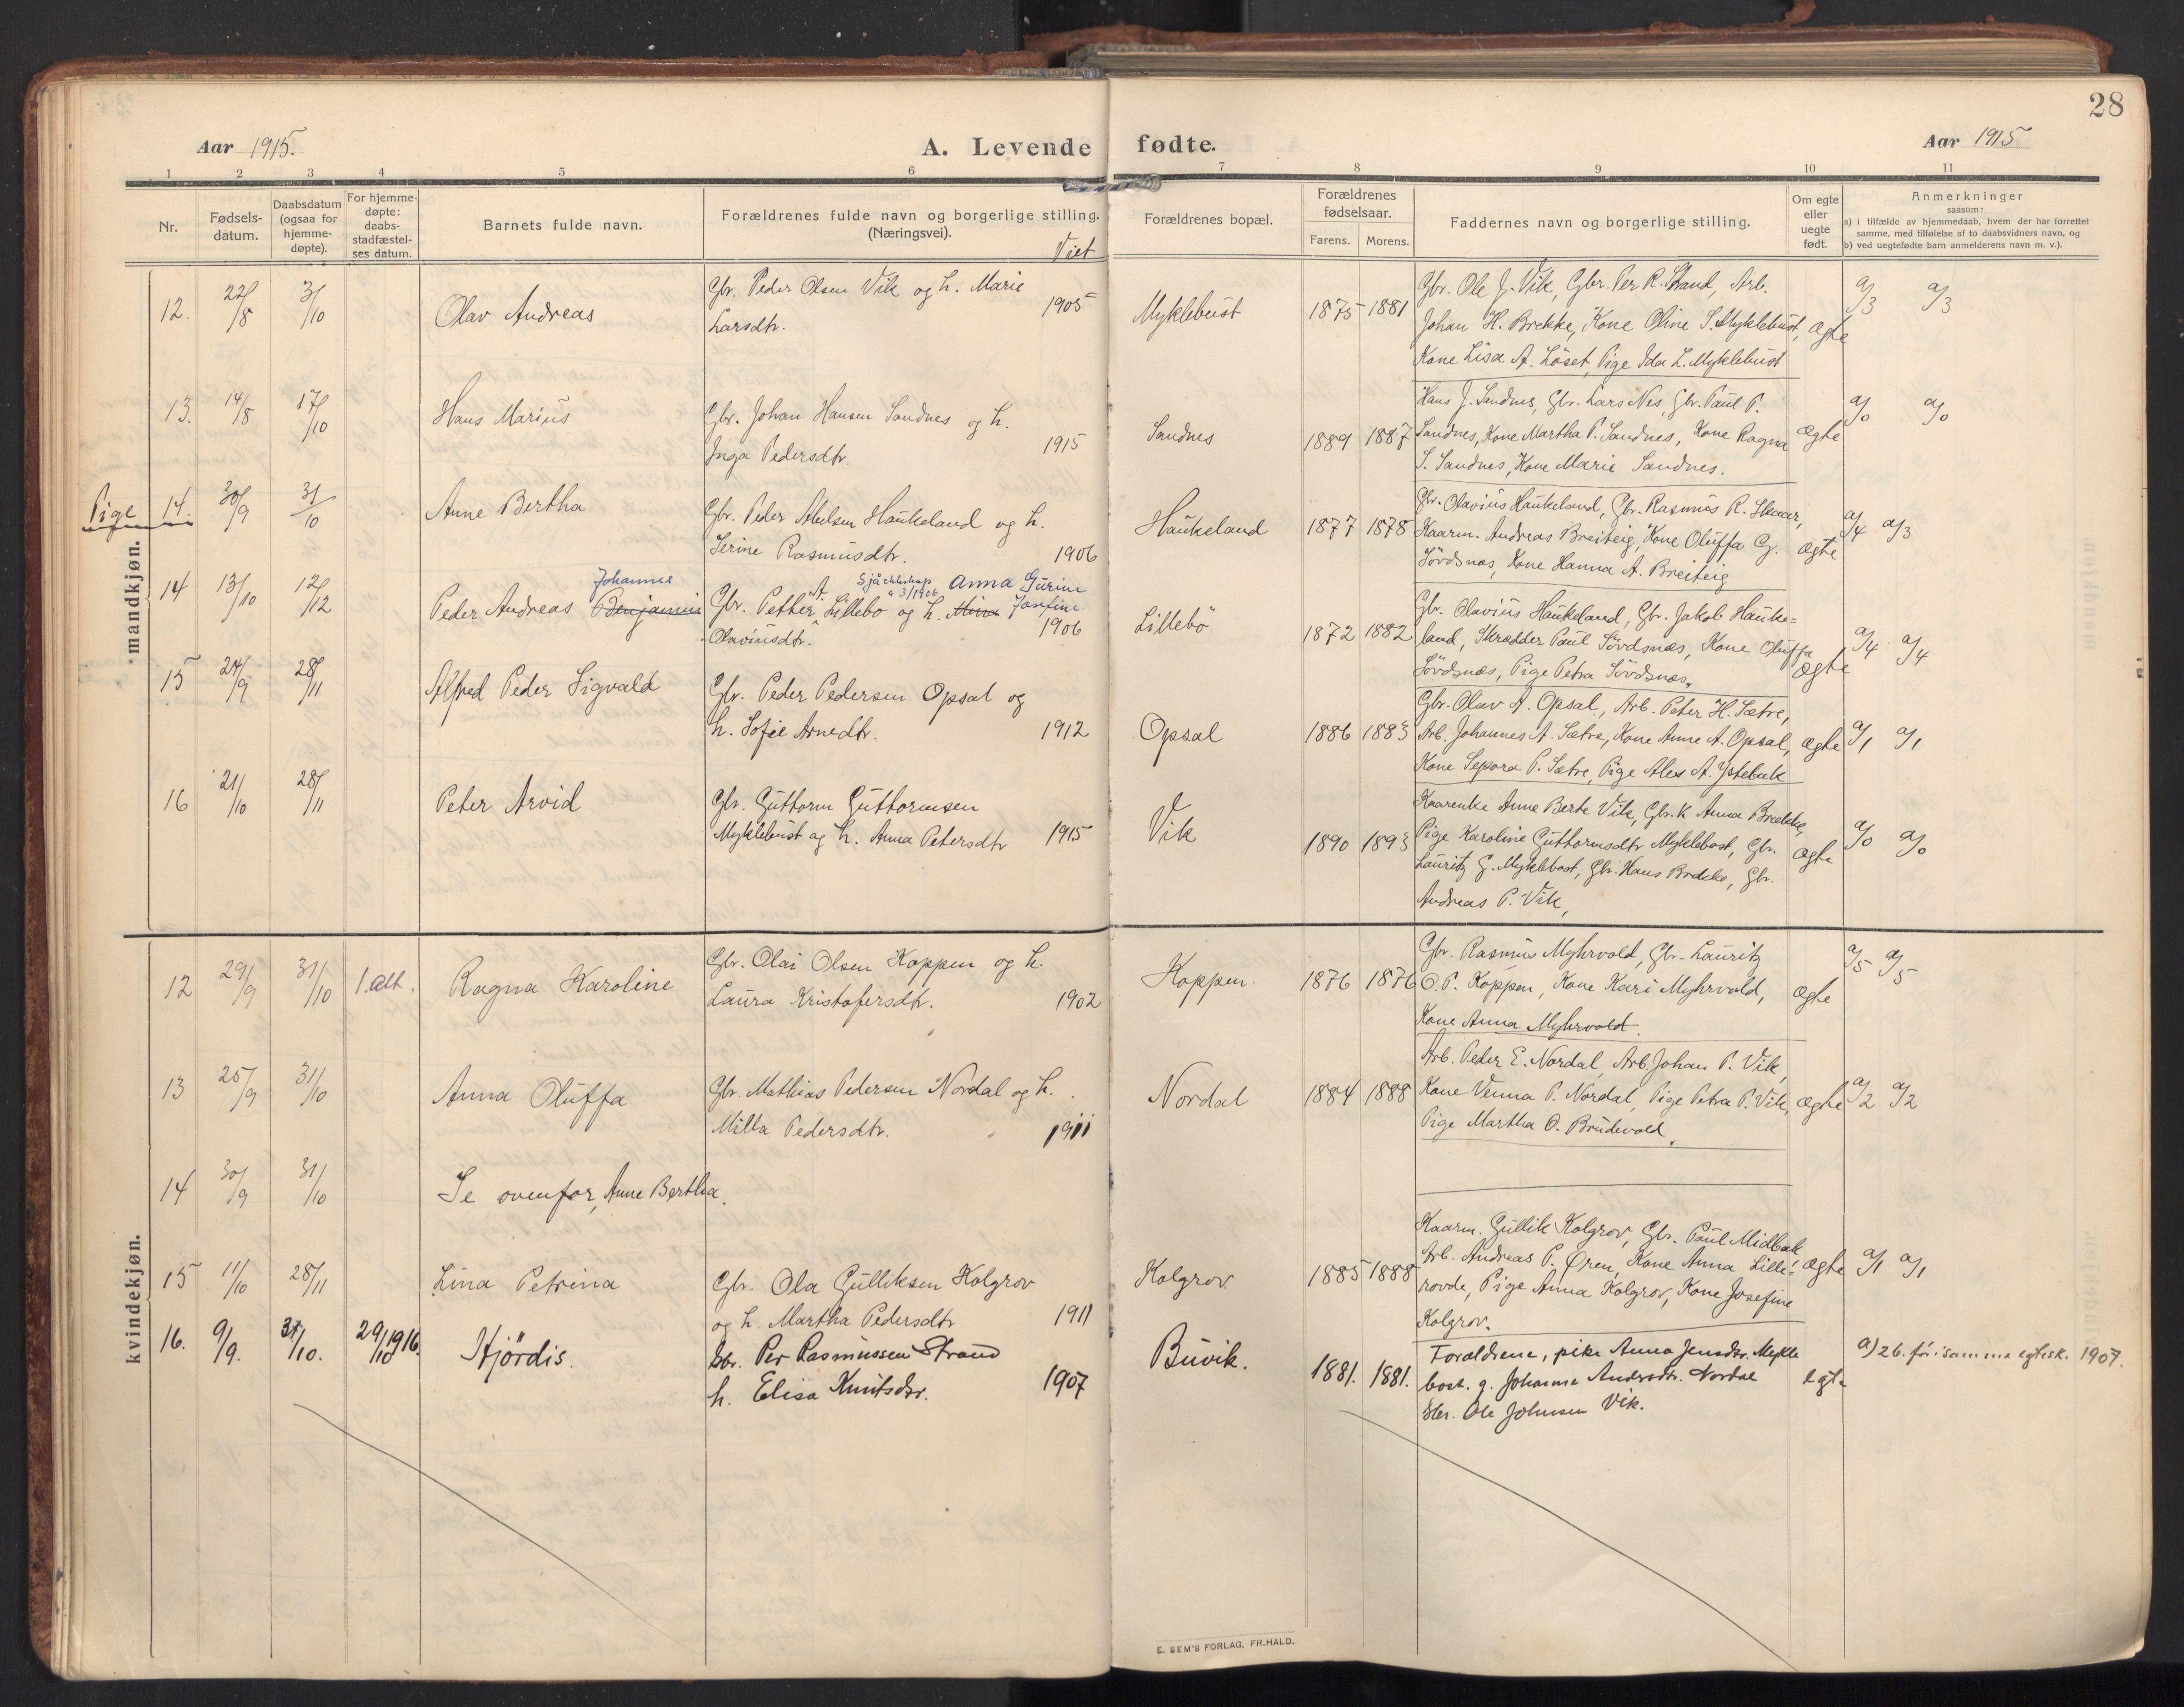 28
Aar 1915.
A. Levende fødte.
Aar 1915
1 2 3 4 5 6 7 8 9 10 11
Nr.
Fødsels-
datum.
Daabsdatum
(ogsaa for
hjemme-
døpte).
For hjemme-
døpte:
daabs-
stadfæstel-
ses datum.
Barnets fulde navn.
Forældrenes fulde navn og borgerlige stilling.
(Næringsvei).
Viet
Forældrenes bopæl.
Forældrenes
fødselsaar.
Farens. Morens.
Faddernes navn og borgerlige stilling.
Om egte
eller
uegte
født.
Anmerkninger
saasom:
a) i tilfælde av hjemmedaab, hvem der har forrettet
samme, med tilføielse af to daabsvidners navn, og
b) ved uegtefødte barn anmelderens navn m. v.).
mandkjøn.
12. 22/8 3/10 Olav Andreas
Gbr. Peder Olsen Vik og h. Marie
Larsdtr. 1905
Myklebust 1875 1881
Gbr. Ole J. Vik, Gbr. Per R. Strand, Arb.
Johan H. Brekke, Kone Oline S. Myklebust,
Kone Lisa A. Löset, Pige Ida L. Myklebust
Ægte a/3 a/3
13. 14/8 17/10 Hans Marius
Gbr. Johan Hansen Sandnes og h.
Inga Pedersdtr. 1915
Sandnes 1889 1887
Hans J. Sandnes, Gbr. Lars Nes, Gbr. Paul P.
Sandnes, Kone Martha P. Sandnes, Kone Ragna
S. Sandnes, Kone Marie Sandnes.
Ægte a/0 a/0
Pige 14. 30/9 31/10 Anne Bertha
Gbr. Peder Abelsen Haukeland og h.
Serine Rasmusdtr. 1906
Haukeland 1877 1878
Gbr. Olavius Haukeland, Gbr. Rasmus R. Skaar,
Kaarm. Andreas Breiteig, Kone Oluffa G.
Sördsnæs, Kone Hanna A. Breiteig
Ægte a/4 a/3
14 13/10 12/12 Peder Andreas Benjamin Johannes
A. 3/1906 Anna Gurine
Gbr. Petter Lillebö og h. Josefine
Olaviusdtr. 1906
Lillebö 1872 1882
Gbr. Olavius Haukeland, Gbr. Jakob Hauke=
land, Skrædder Paul Sördsnæs, Kone Oluffa
Sördsnæs, Pige Petra Sördsnæs.
Ægte a/4 a/4
15 24/9 28/11 Alfred Peder Sigvald
Gbr. Peder Pedersen Opsal og
h. Sofie Arnedtr. 1912
Opsal 1886 1883
Gbr. Olav A. Opsal, Arb. Peter H. Sætre,
Arb. Johannes A. Sætre, Kone Anne A. Opsal,
Kone Sepora P. Sætre, Pige Alex A. Ystebak
Ægte a/1 a/1
16 21/10 28/11 Peter Arvid
Gbr. Guttorm Guttormsen
Myklebust og h. Anna Petersdtr 1915
Vik 1890 1893
Kaarenke Anne Berte Vik, Gbr. K Anna Brække,
Pige Karoline Guttormsdtr Myklebost, Gbr.
Lauritz G. Myklebost, Gbr. Hans Brekke, Gbr.
Andreas P. Vik,
Ægte a/0 a/0
kvindekjøn.
12 29/9 31/10 Ragna Karoline
Gbr. Olai Olsen Koppen og h.
Laura Kristofersdtr. 1902
Koppen. 1876 1876
Gbr. Rasmus Myhrvold, Gbr. Lauritz
O. P. Koppen, Kone Kari Myhrvold,
Kone Anna Myhrvold.
Ægte a/5 a/5
13 25/9 31/10 Anna Oluffa
Gbr. Mathias Pedersen Nordal og h.
Milla Pedersdtr. 1911
Nordal 1884 1888
Arb. Peder E. Nordal, Arb. Johan P. Vik,
Kone Venna P. Nordal, Pige Petra P. Vik,
Pige Martha O. Brudevold.
Ægte a/2 a/2
14 30/9 31/10 Se ovenfor, Anne Bertha.
15 11/10 28/11 Lina Petrina
Gbr. Ola Gulliksen Kolgrov
og h. Martha Pedersdtr 1911
Kolgrov 1885 1888
Kaarm. Gullik Kolgrov, Gbr. Paul Midbøk,
Arb. Andreas P. Øren, Kone Anna Lille=
rovde, Pige Anna Kolgrov, Kone Josefine
Kolgrov.
Ægte a/1 a/1
16. 9/9. 31/10. 29/10 1916. Hjördis.
Gbr. Per Rasmussen Strand
h. Elisa Knutsdtr. 1907
Buvik. 1881. 1881.
Foraldrene, pike Anna Jensdtr. Mykle
bost. g. Johanna Andersdtr. Nordal
Gbr. Ole Johnsen Vik.
egte
a) 2 b. før i samme egtesk. 1907.
E. SEM'S FORLAG, FR.HALD.